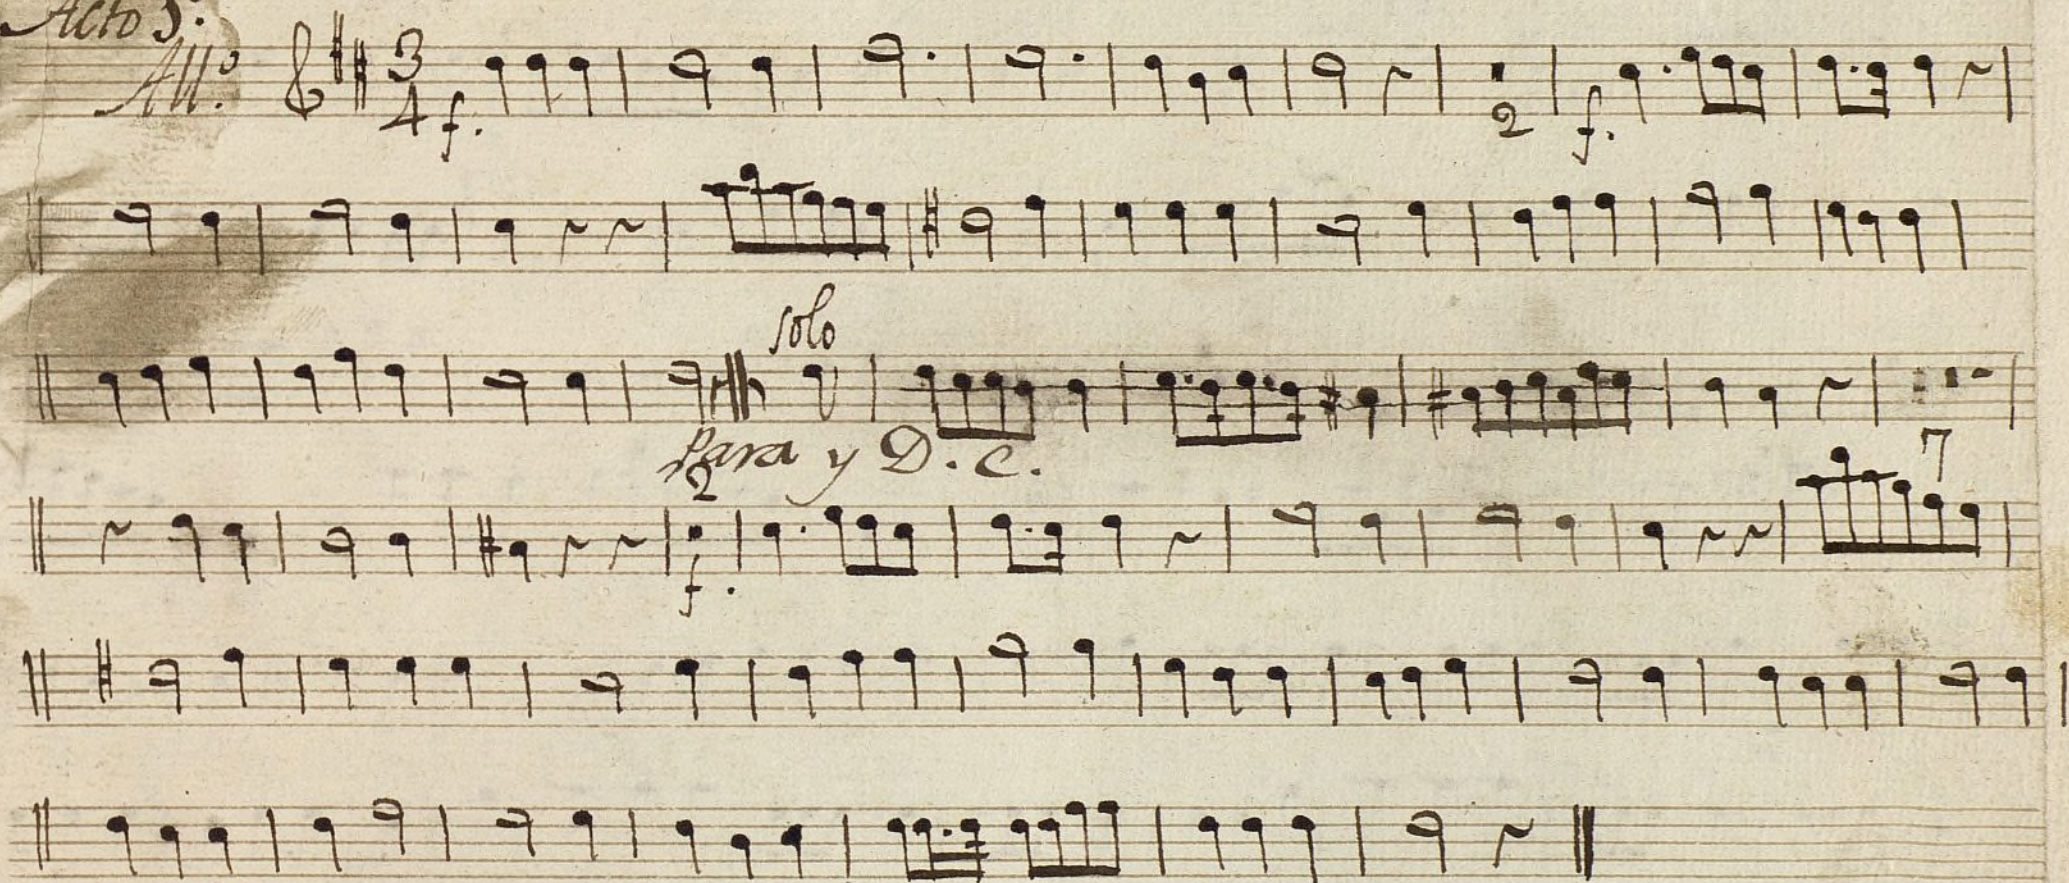 Acto 3º
All.º 3 4 f. 2 f.
solo
Para y D. C.
2 7
f.